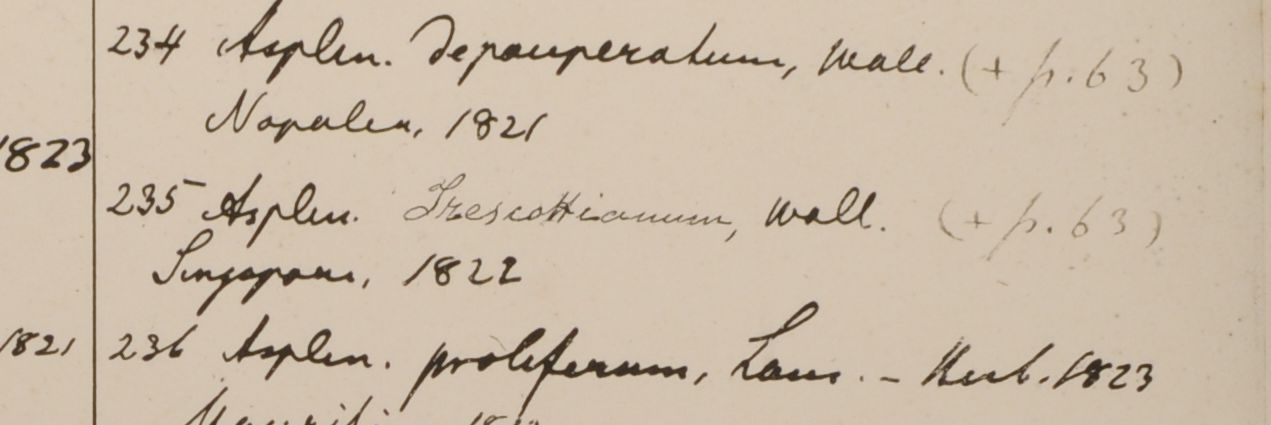 234 Asplen. depauperatum, Wall. (+ p. 63)
Napalea, 1821
1823
235 Asplen. Trescottianum, Wall. (+ p. 63)
Singapore, 1822
1821 236 Asplen. proliferum, Lam. - Herb. 1823